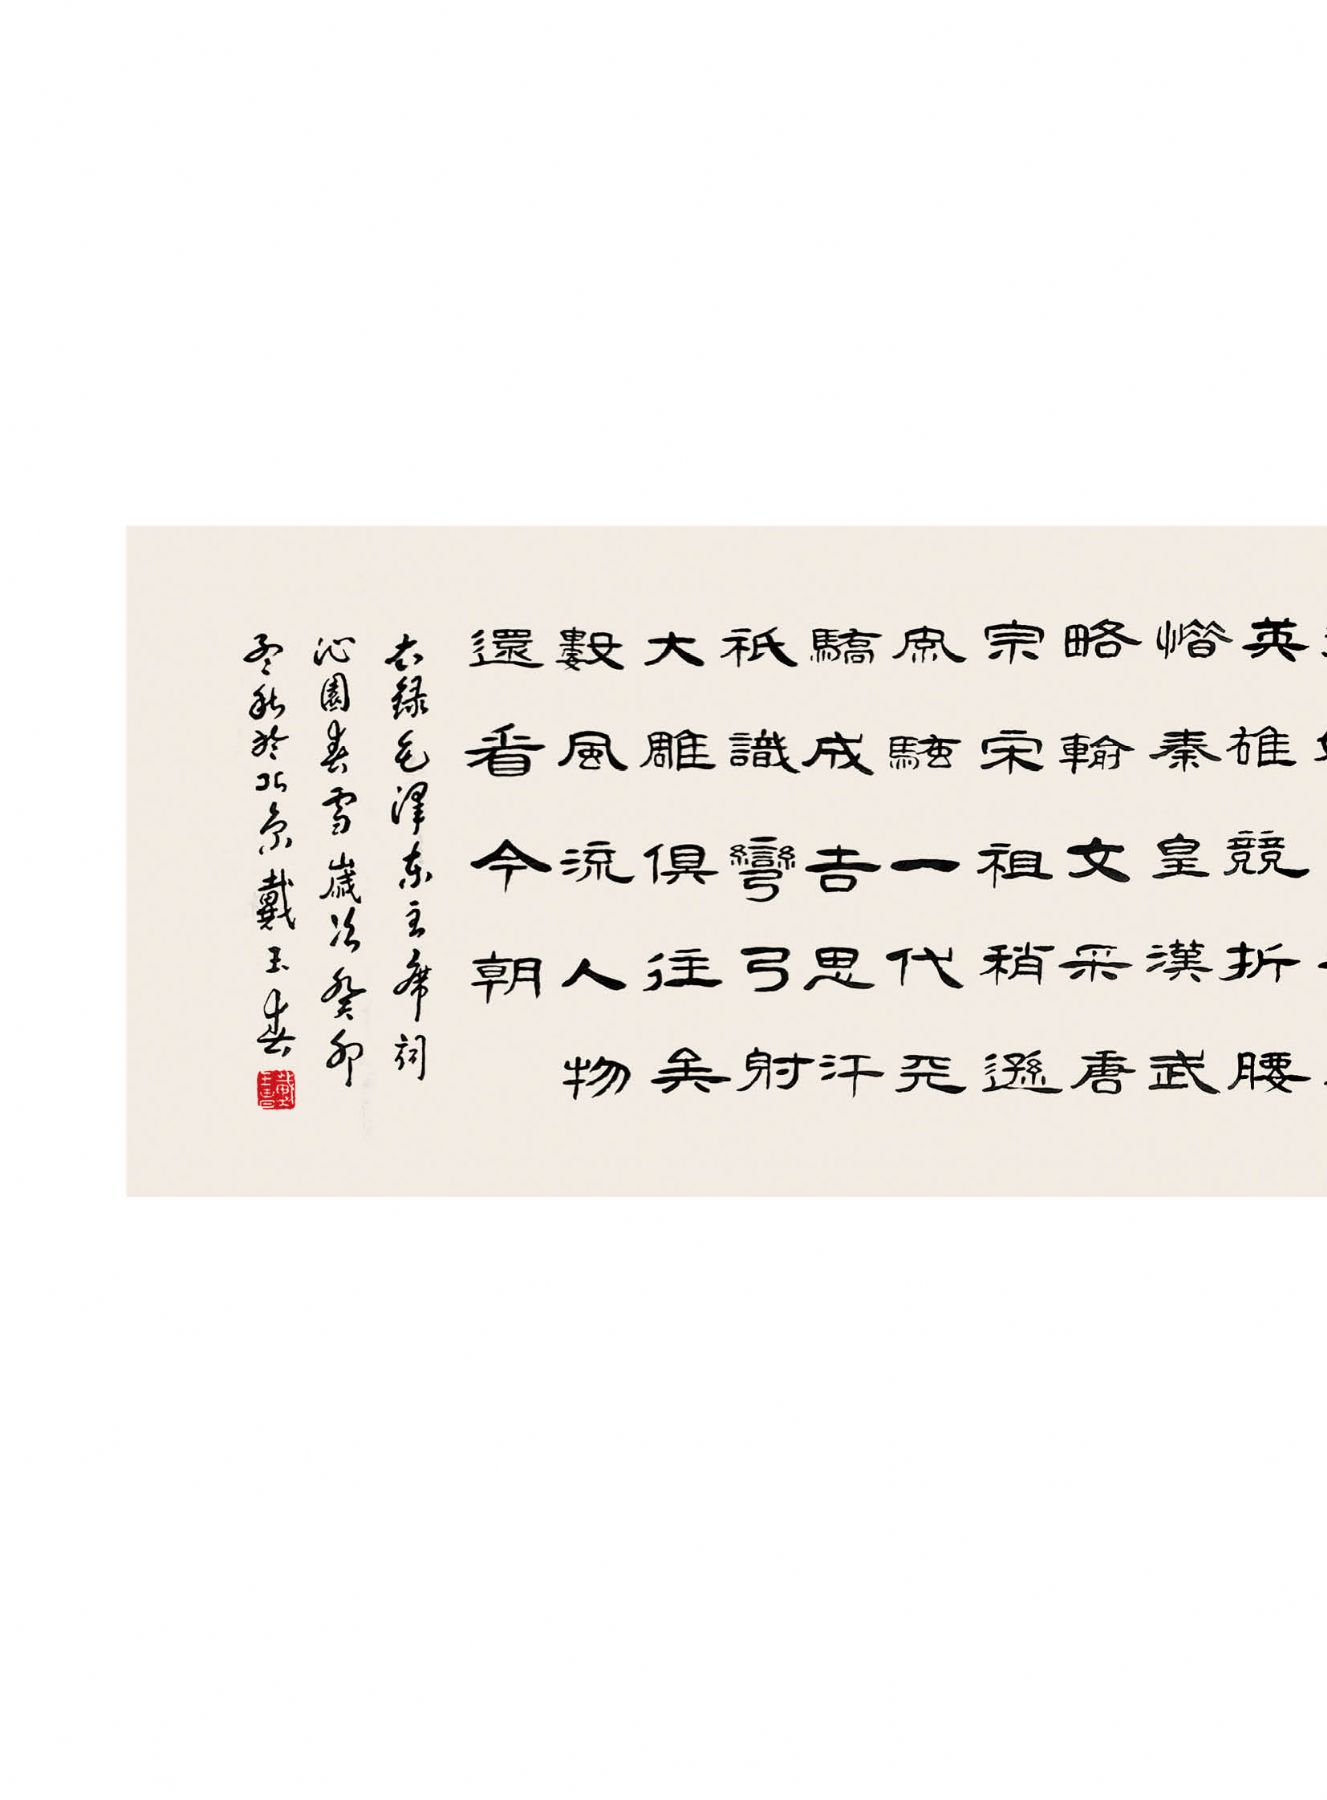 英雄競折腰
惜秦皇漢武
略輸文采唐
宗宋祖稍遜
風騷一代天
驕成吉思汗
祇識彎弓射
大雕俱往矣
數風流人物
還看今朝
右錄毛澤東主席詞
沁園春雪歲次癸卯
孟秋於北京戴玉春